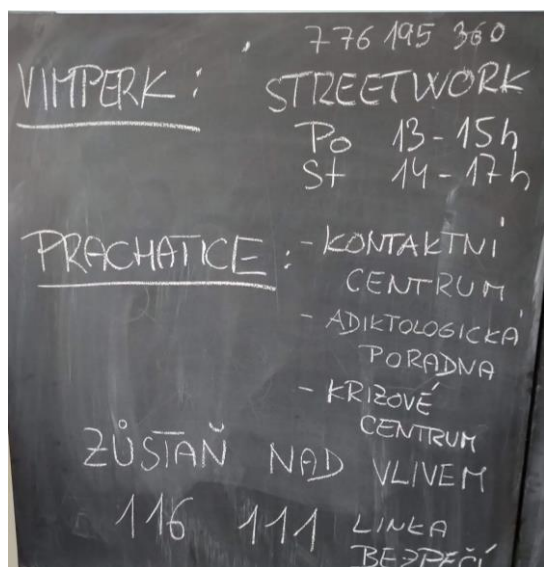 776 195 360
VIMPERK: STREETWORK
Po 13-15h
St 14-17h
PRACHATICE: - KONTAKTNÍ
CENTRUM
- ADIKTOLOGICKÁ
PORADNA
- KRIZOVÉ
CENTRUM
ZŮSTAŇ NAD VLIVEM
116 111 LINKA
BEZPEČÍ